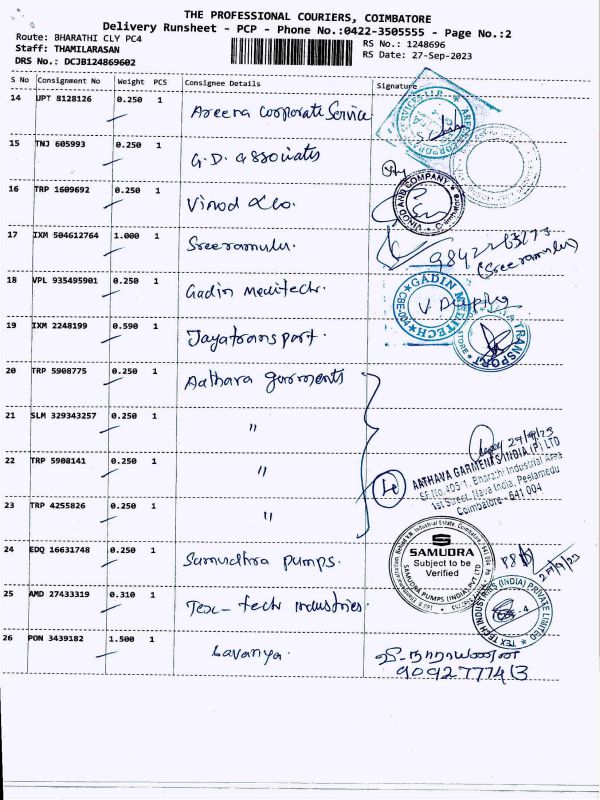 THE PROFESSIONAL COURIERS, COIMBATORE
Delivery Runsheet - PCP - Phone No.:0422-3505555 - Page No.:2
Route: BHARATHI CLY PC4
RS No.: 1248696
Staff: THAMILARASAN
RS Date: 27-Sep-2023
DRS No.: DCJB124869602
S No Consignment No Weight PCS Consignee Details Signature
14 UPT 8128126 0.250 1 Areera Corporate Service
15 TNJ 605993 0.250 1 G.D. associates
16 TRP 1609692 0.250 1 Vinod &co.
VINOD AND COMPANY
17 IXM 504612764 1.000 1 Sreeramulu.
(Sreeramulu)
18 VPL 935495901 0.250 1 Gadin meditech.
GADIN MEDITECH
19 IXM 2248199 0.590 1 Jayatransport.
TRANSPORT
20 TRP 5908775 0.250 1 Aathava garments
21 SLM 329343257 0.250 1 "
22 TRP 5908141 0.250 1 "
27/9/23
4
AATHAVA GARMENTS INDIA (P) LTD
SF.No.405/1, Bharathi Industrial Area
1st Street, Nava India, Peelamedu
Coimbatore - 641 004
23 TRP 4255826 0.250 1 "
24 EDQ 16631748 0.250 1 Samudhra pumps.
SAMUDRA
Subject to be
Verified
SAMUDRA PUMPS (INDIA) PVT LTD
27/9/23
25 AMD 27433319 0.310 1 Tex-tech industries.
TEX TECH INDUSTRIES (INDIA) PRIVATE LIMITED
26 PON 3439182 1.500 1 Lavanya.
வி. நாராயணன்
9092777413